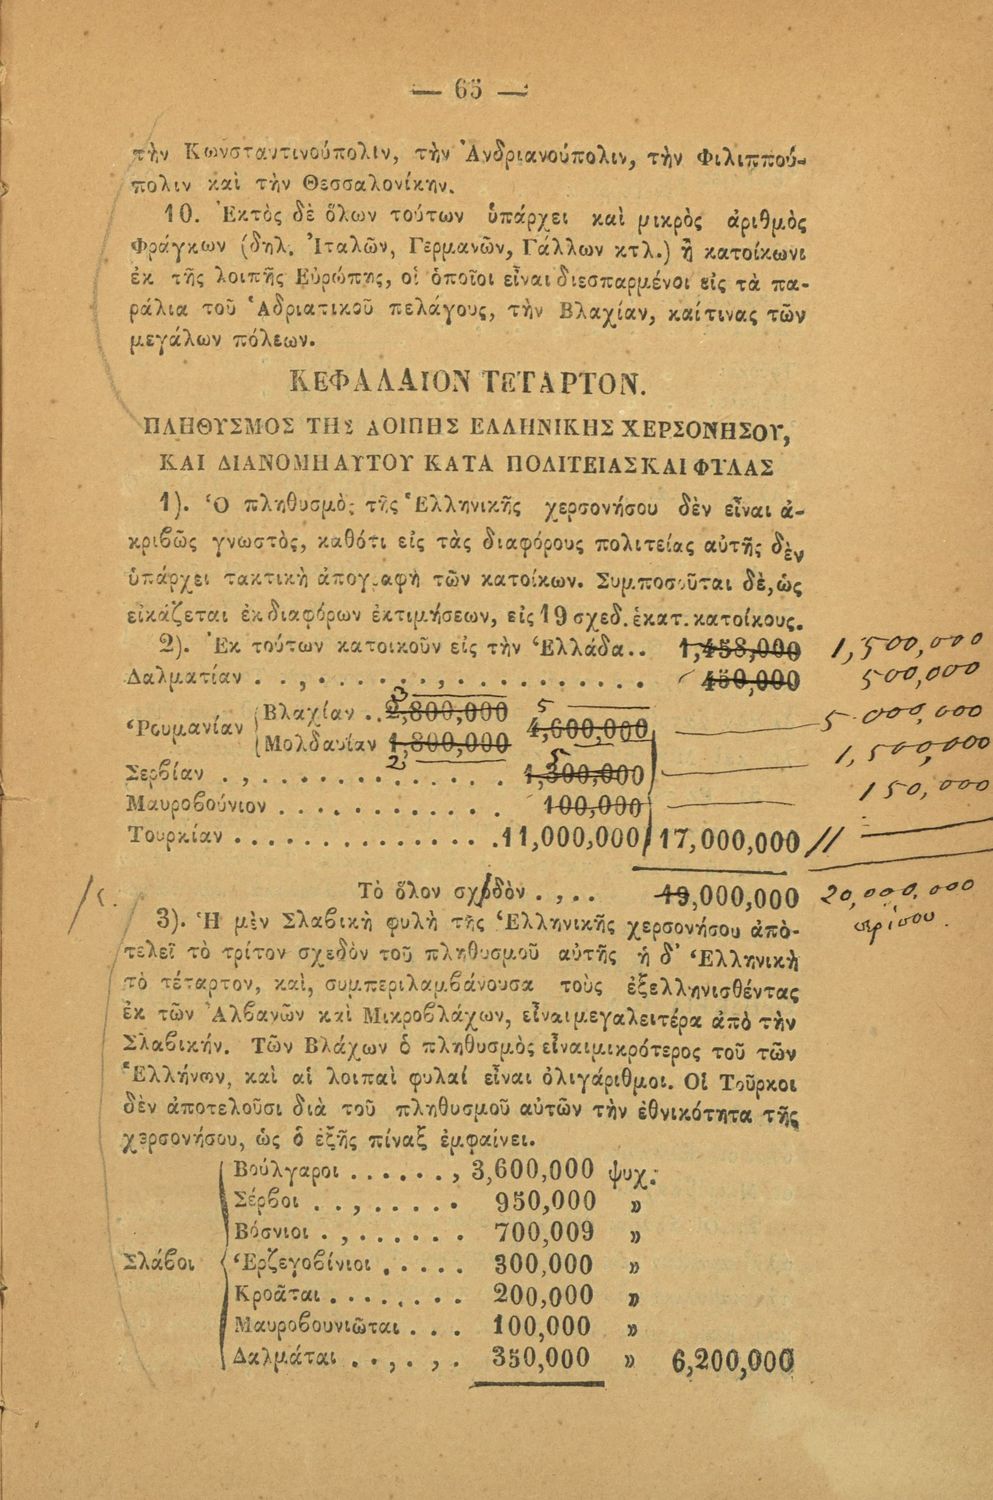 — 65 —
τὴν Κωνσταντινούπολιν, τὴν Ἀνδριανούπολιν, τὴν Φιλιππού-
πολιν καὶ τὴν Θεσσαλονίκην.
10. Ἐκτὸς δὲ ὅλων τούτων ὑπάρχει καὶ μικρὸς ἀριθμὸς
Φράγκων (δηλ. Ἰταλῶν, Γερμανῶν, Γάλλων κτλ.) ἢ κατοίκωνι
ἐκ τῆς λοιπῆς Εὐρώπης, οἱ ὁποῖοι εἶναι διεσπαρμένοι εἰς τὰ πα-
ράλια τοῦ Ἀδριατικοῦ πελάγους, τὴν Βλαχίαν, καίτινας τῶν
μεγάλων πόλεων.
ΚΕΦΑΛΑΙΟΝ ΤΕΤΑΡΤΟΝ.
ΠΛΗΘΥΣΜΟΣ ΤΗΣ ΛΟΙΠΗΣ ΕΛΛΗΝΙΚΗΣ ΧΕΡΣΟΝΗΣΟΥ,
ΚΑΙ ΔΙΑΝΟΜΗ ΑΥΤΟΥ ΚΑΤΑ ΠΟΛΙΤΕΙΑΣ ΚΑΙ ΦΥΛΑΣ
1). Ὁ πληθυσμὸς τῆς Ἑλληνικῆς χερσονήσου δὲν εἶναι ἀ-
κριβῶς γνωστὸς, καθότι εἰς τὰς διαφόρους πολιτείας αὐτῆς δὲν
ὑπάρχει τακτικὴ ἀπογραφὴ τῶν κατοίκων. Συμποσοῦται δὲ, ὡς
εἰκάζεται ἐκ διαφόρων ἐκτιμήσεων, εἰς 19 σχεδ. ἑκατ. κατοίκους.
2). Ἐκ τούτων κατοικοῦν εἰς τὴν Ἑλλάδα.. 1,458,000 1,500,000
Δαλματίαν . . , . . . . . , . . . . . . . . . 450,000 500,000
Ῥουμανίαν { Βλαχίαν .. 2,800,000 3 4,600,000 5 5 000,000
Μολδαυίαν 1,800,000 2
Σερβίαν . , . . . . . . . . . . 1,300,000 5 1,500,000
Μαυροβούνιον . . . . . . . . . . 100,000 150,000
Τουρκίαν . . . . . . . . . . . . . . 11,000,000 17,000,000 //
Τὸ ὅλον σχεδὸν . , . . 19,000,000 20,000,000
περίπου.
3). Ἡ μὲν Σλαβικὴ φυλὴ τῆς Ἑλληνικῆς χερσονήσου ἀπο-
τελεῖ τὸ τρίτον σχεδὸν τοῦ πληθυσμοῦ αὐτῆς ἡ δ' Ἑλληνικὴ
τὸ τέταρτον, καὶ, συμπεριλαμβάνουσα τοὺς ἐξελληνισθέντας
ἐκ τῶν Ἀλβανῶν καὶ Μικροβλάχων, εἶναι μεγαλειτέρα ἀπὸ τὴν
Σλαβικήν. Τῶν Βλάχων ὁ πληθυσμὸς εἶναι μικρότερος τοῦ τῶν
Ἑλλήνων, καὶ αἱ λοιπαὶ φυλαί εἶναι ὀλιγάριθμοι. Οἱ Τοῦρκοι
δὲν ἀποτελοῦσι διὰ τοῦ πληθυσμοῦ αὐτῶν τὴν ἐθνικότητα τῆς
χερσονήσου, ὡς ὁ ἑξῆς πίναξ ἐμφαίνει.
Βούλγαροι . . . . . . , 3,600,000 ψυχ.
Σέρβοι . . , . . . . . 950,000 »
Βόσνιοι . , . . . . . . 700,009 »
Σλάβοι { Ἑρζεγοβίνιοι . . . . . 300,000 »
Κροᾶται . . . . . . . . 200,000 »
Μαυροβουνιῶται . . . 100,000 »
Δαλμάται . . , . , . 350,000 » 6,200,000